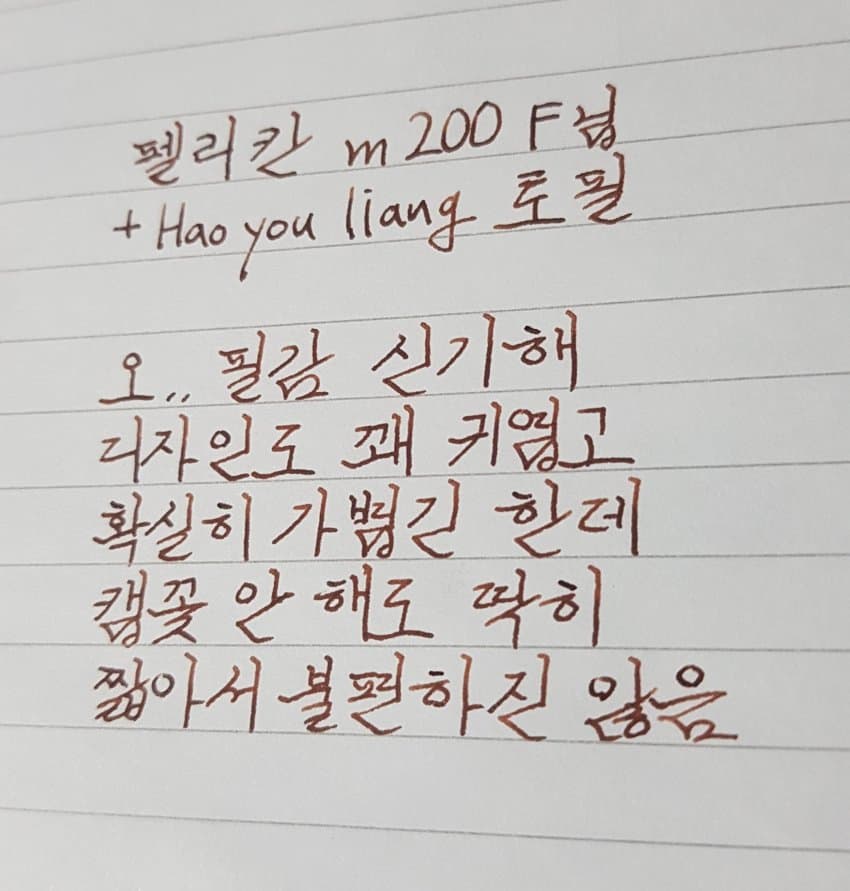 펠리칸 m200 F닙
+ Hao you liang 토필
오.. 필감 신기해
디자인도 꽤 귀엽고
확실히 가볍긴 한데
캡꽂 안 해도 딱히
짧아서 불편하진 않음